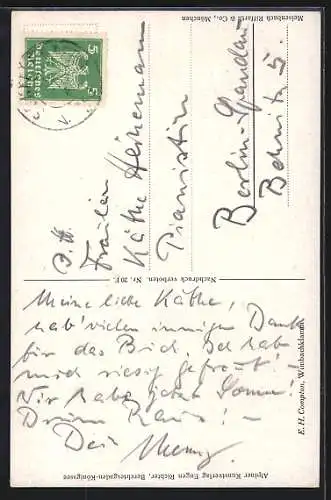 Meisenbach Riffarth & Co., München
5 5
Deutsches Reich
Fräulein
Käthe Heinemann
Pianistin
Berlin-Spandau
Nachdruck verboten. Nr. 20 F.
Meine liebe Käthe,
hab' vielen innigen Dank
für das Bild. Ich hab
mich riesig gefreut! –
Wir habe jetzt Sonne!
Dein
E. H. Compton, Wimbachklamm
Alpiner Kunstverlag Eugen Richter, Berchtesgaden-Königssee